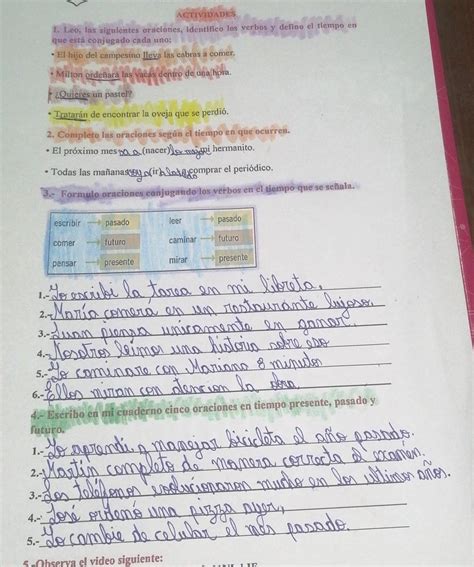 ACTIVIDADES
1. Leo, las siguientes oraciones, identifico los verbos y defino el tiempo en
que está conjugado cada uno:
• El hijo del campesino lleva las cabras a comer.
• Milton ordeñará las vacas dentro de una hora.
• ¿Quieres un pastel?
• Tratarán de encontrar la oveja que se perdió.
2. Completo las oraciones según el tiempo en que ocurren.
• El próximo mes va a (nacer) mi hermanito.
• Todas las mañanas voy a (ir) comprar el periódico.
3.- Formulo oraciones conjugando los verbos en el tiempo que se señala.
escribir → pasado leer → pasado
comer → futuro caminar → futuro
pensar → presente mirar → presente
1.- Yo escribí la tarea en mi libreta.
2.- María comera en un restaurante lujoso.
3.- Juan piensa unicamente en ganar.
4.- Nosotros leimos una historia sobre eso
5.- Yo caminare con Mariana 8 minutos
6.- Ellos miran con atencion la obra
4.- Escribo en mi cuaderno cinco oraciones en tiempo presente, pasado y
futuro.
1.- Yo aprendi a manejar bicicleta el año pasado.
2.- Martin completo de manera correcta el examen.
3.- Los teléfonos evolucionaron mucho en los ultimos años.
4.- José ordenó una pizza ayer,
5.- Yo cambie de celular el mes pasado.
5.-Observa el video siguiente: